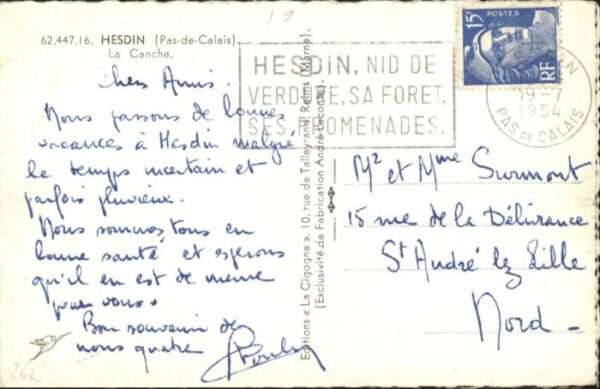 62.447.16. HESDIN (Pas-de-Calais).
La Canche.
Chers Amis.
Nous passons de bonnes
vacances à Hesdin malgré
le temps incertain et
parfois pluvieux.
Nous sommes tous en
bonne santé et espérons
qu'il en est de même
pour vous.
Bon souvenir de
nous quatre
262
Editions « La Cigogne », 10, rue de Talleyrand, Reims (Marne).
(Exclusivité de Fabrication André Leconte)
HESDIN, NID DE
VERDURE, SA FORET,
SES PROMENADES.
15F
POSTES
RF
19-7
1954
PAS DE CALAIS
Mr et Mme Surmont
15 rue de la Délivrance
St André lez Lille
Nord -